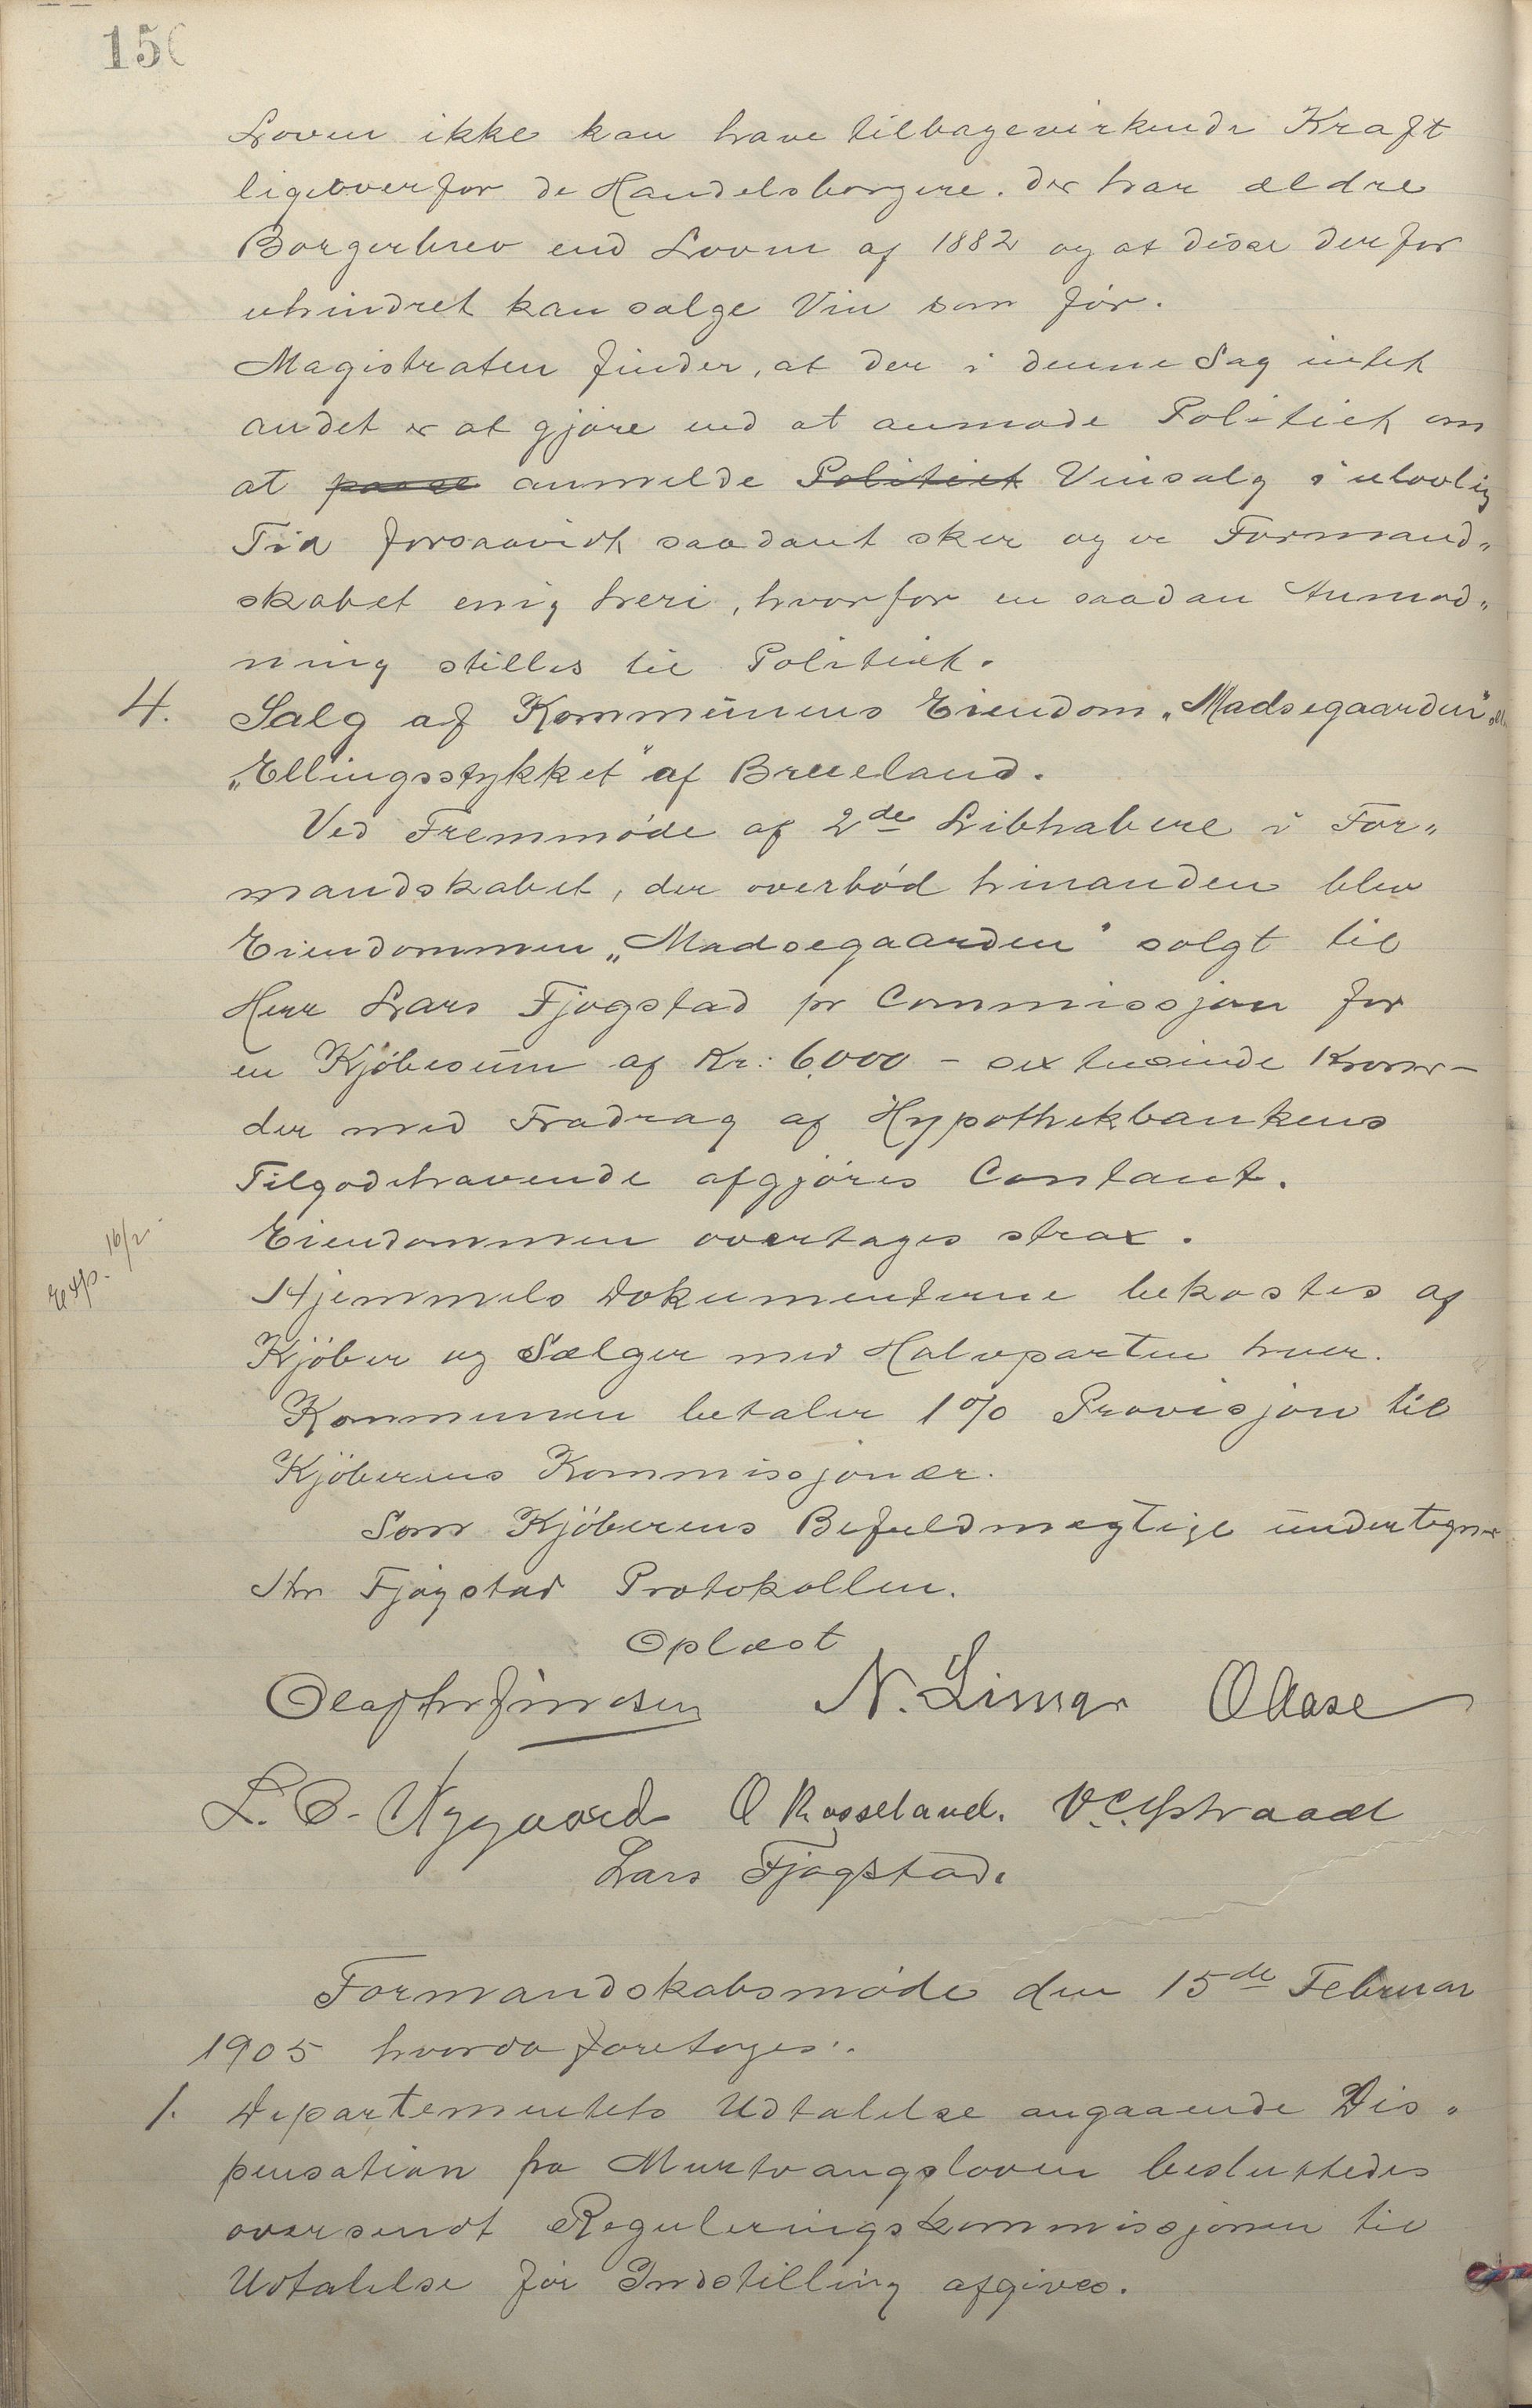 150
Loven ikke kan have tilbagevirkende Kraft
ligeoverfor de Handelsborgere. der har ældre
Borgerbrev end Loven af 1882 og at disse derfor
uhindret kan sælge Vin som før.
Magistraten finder, at der i denne Sag intet
andet er at gjøre end at anmode Politiet om
at paase anmelde Politiet Vinsalg i ulovlig
Tid forsaavidt saadant sker og er Formand„
skabet enig heri, hvorfor en saadan Anmod„
ning stilles til Politiet.
4. Salg af Kommunens Eiendom „Madsegaarden"
„Ellingsstykket" af Brueland.
Ved Fremmøde af 2de Libhabere i For„
mandskabet, der overbød hinanden blev
Eiendommen „Madsegaarden" solgt til
Herr Lars Fjogstad pr Commissjon for
en Kjøbesum af Kr: 6,000 - sex tusinde Kroner -
der med Fradrag af Hypothekbankens
Tilgodehavende afgjøres Contant.
Eiendommen overtages strax.
Exp. 16/2.
Hjemmels Dokumenterne bekostes af
Kjøber og Sælger med Halvparten hver.
Kommunen betaler 1% Provisjon til
Kjøberens Kommissjonær.
Som Kjøberens Befuldmægtige undertegner
Hr Fjogstad Protokollen.
Oplæst
N. Lima O Aase
L. O. Nygaard O Rosseland.
Lars Fjogstad.
Formandskabsmøde den 15de Februar
1905 hvorda foretoges:
1. Departementets Udtalelse angaaende Dis„
pensation fra Murtvangsloven besluttedes
oversendt Reguleringskommissjonen til
Udtalelse før Indstilling afgives.